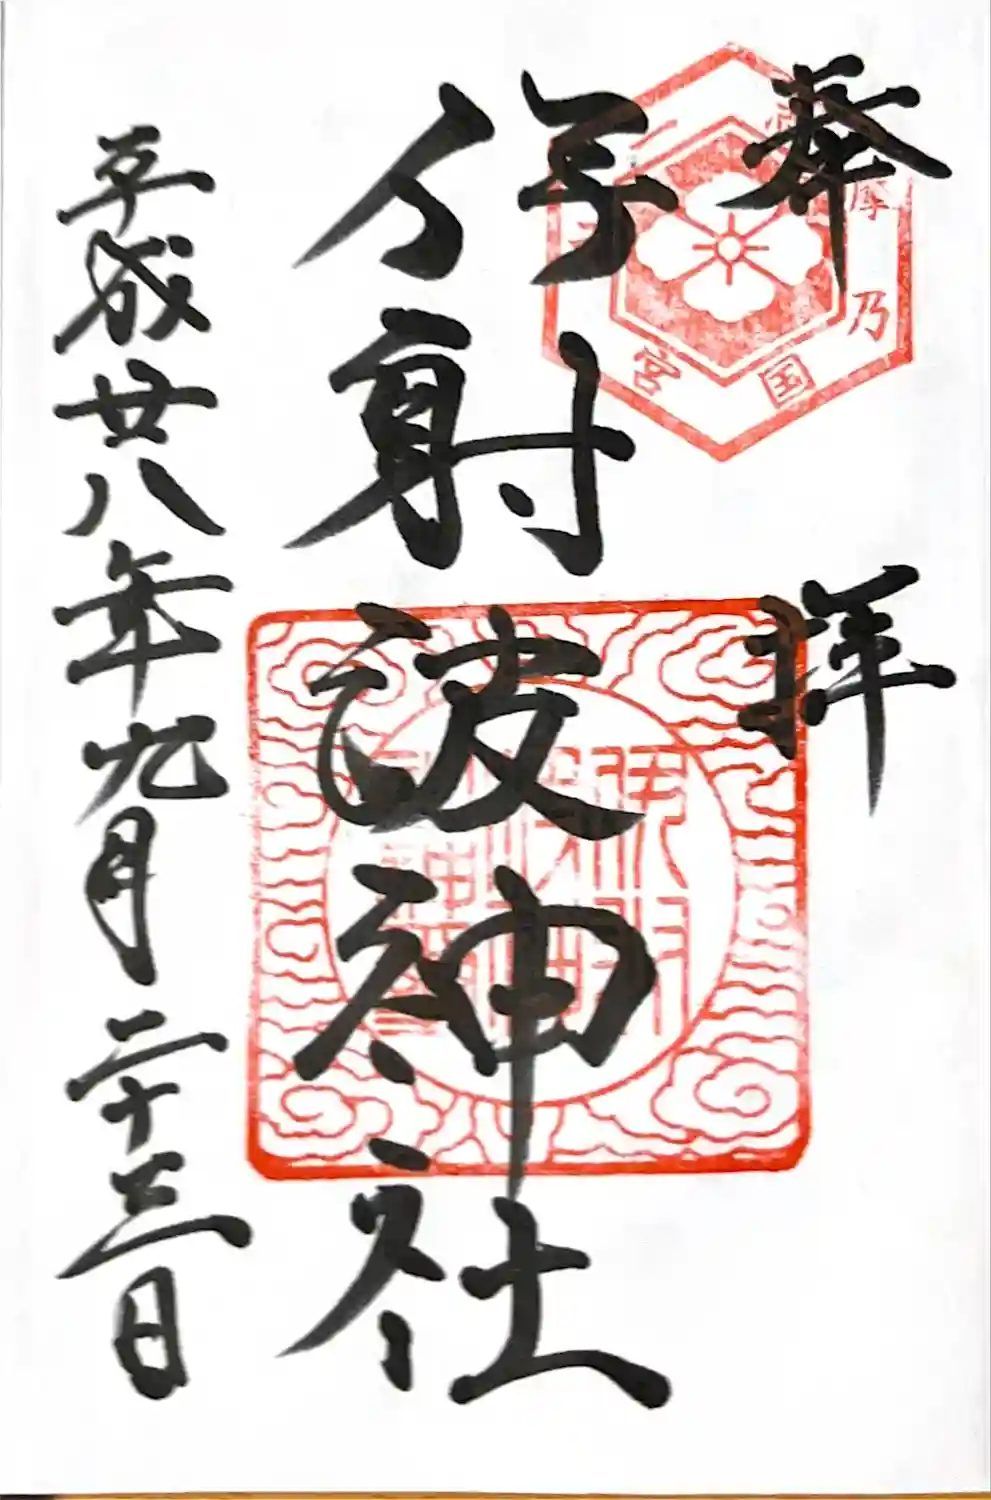 奉拝
志摩乃国一之宮
伊射波神社
平成廿八年九月二十三日